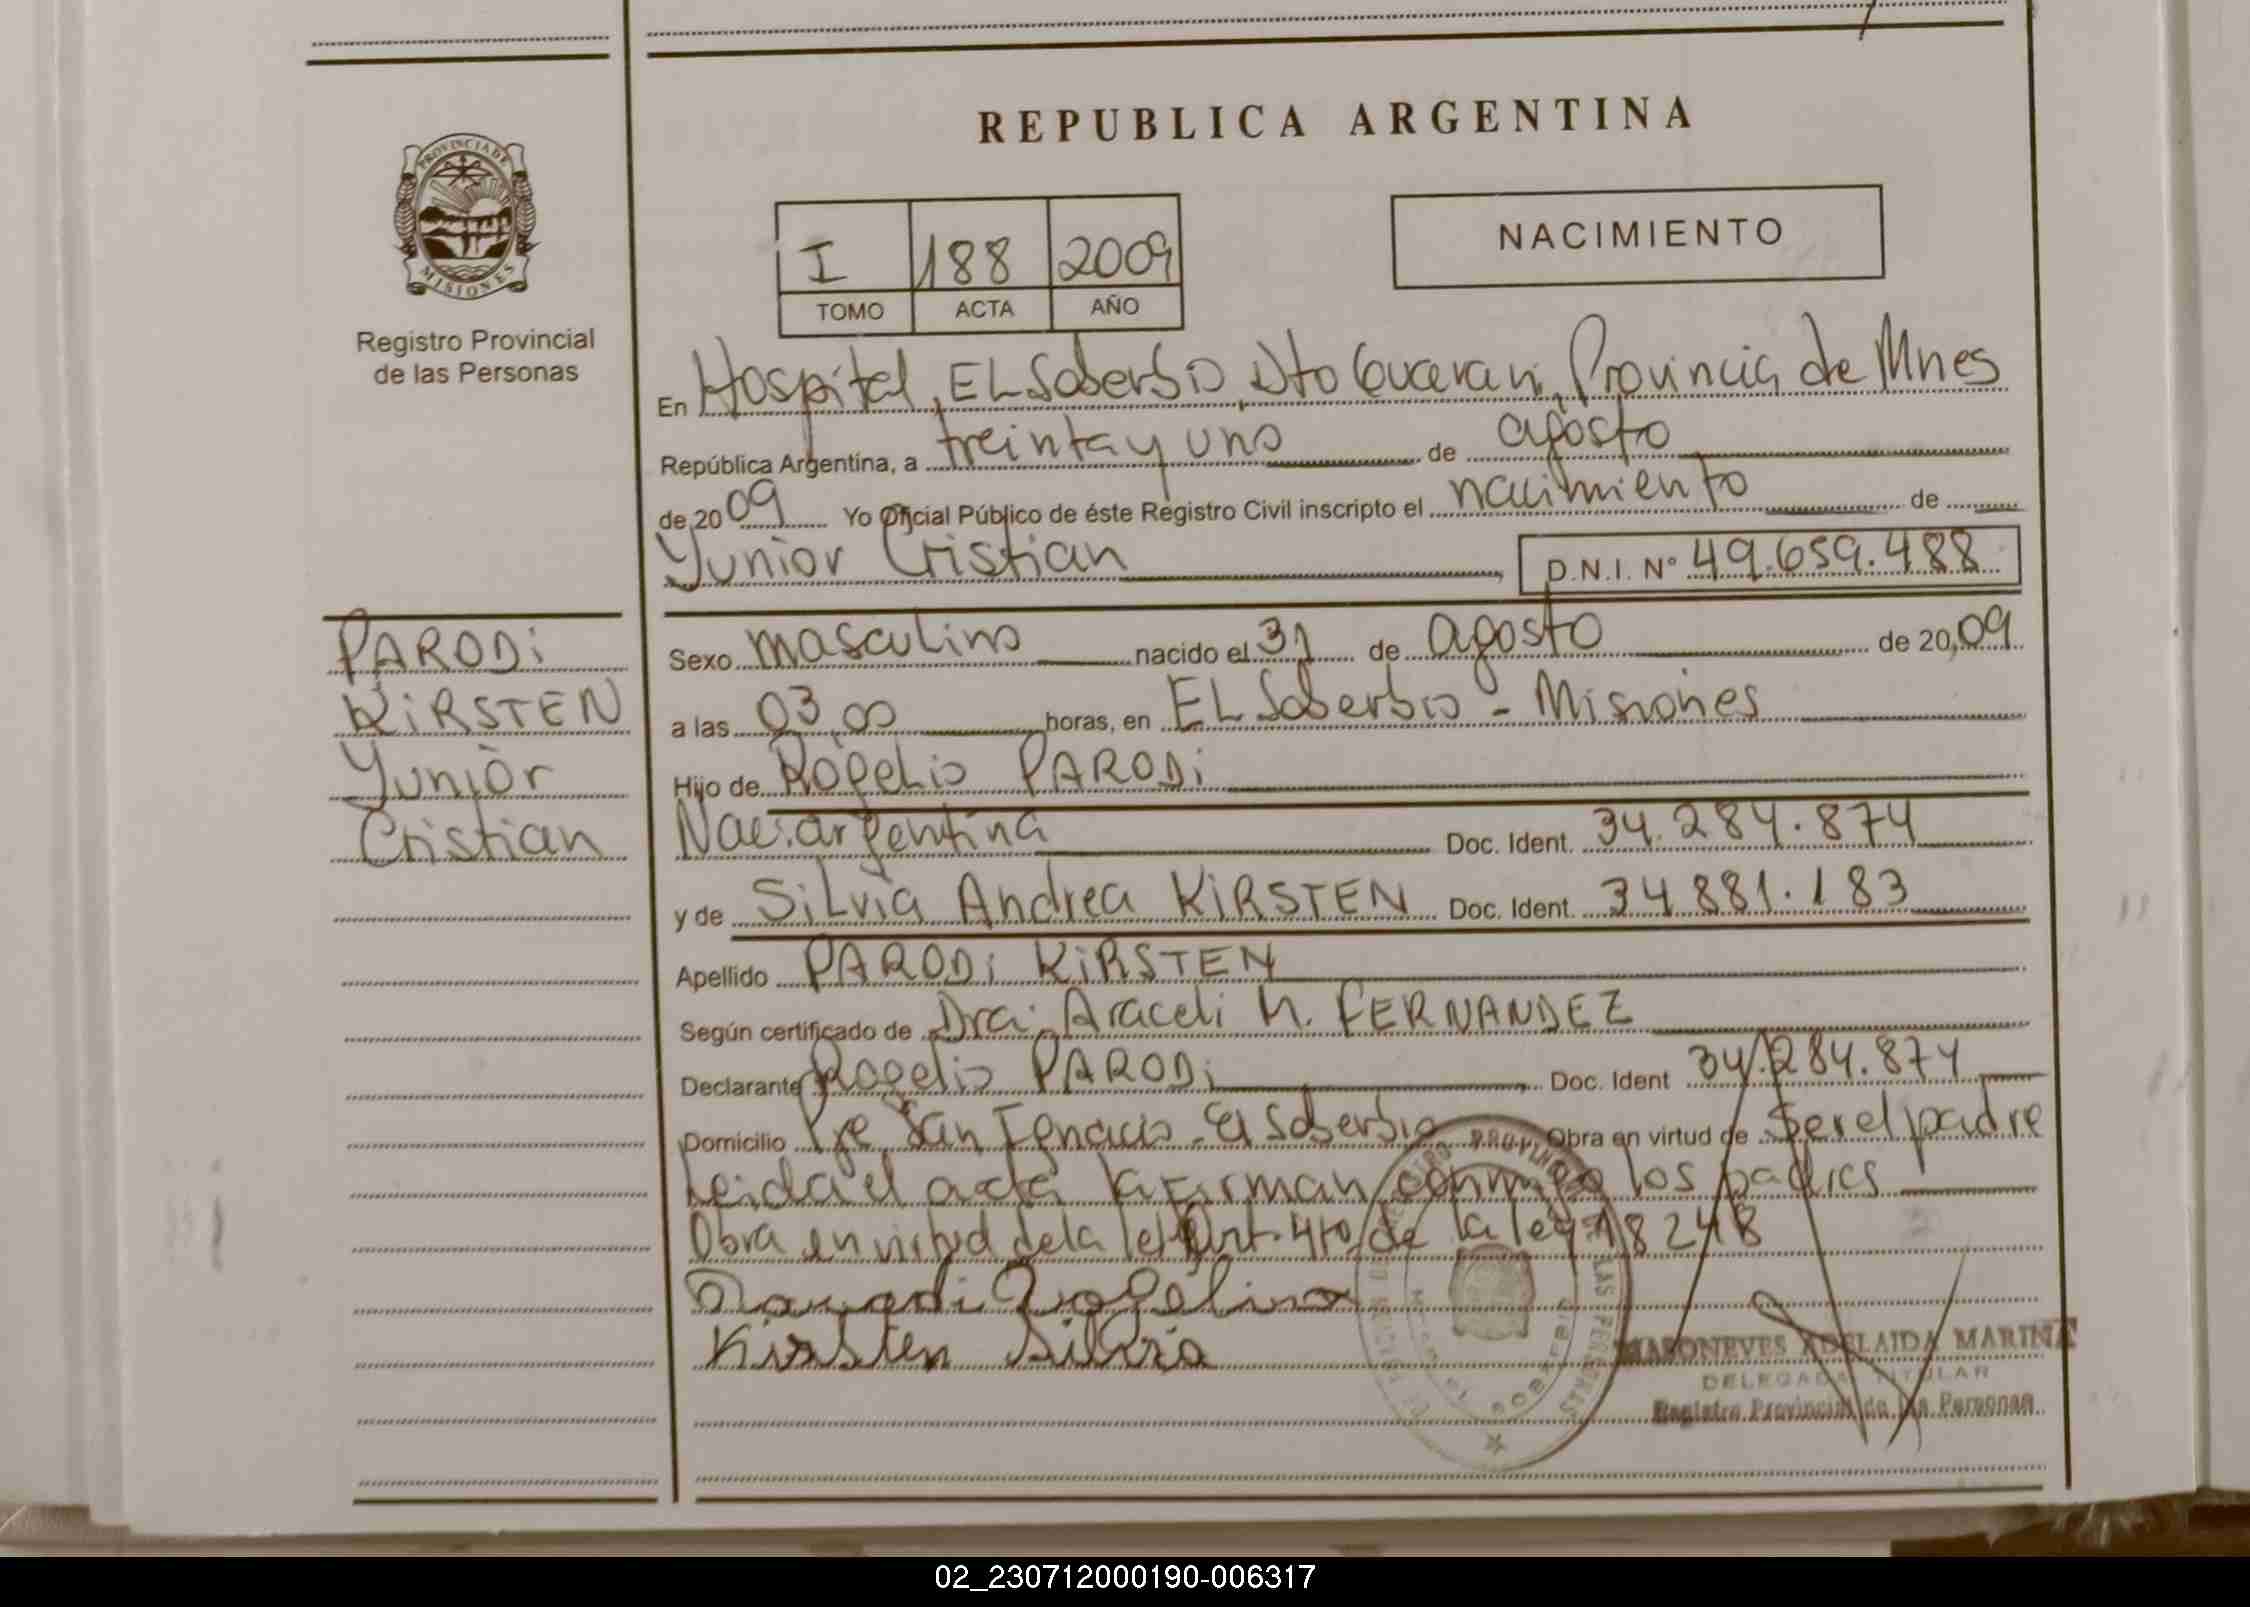 REPUBLICA ARGENTINA
PROVINCIA DE
MISIONES
Registro Provincial
de las Personas
I 188 2009
TOMO ACTA AÑO
NACIMIENTO
En Hospital, EL Soberbio, Dto Guarani, Provincia de Mnes
República Argentina, a treinta y uno de agosto
de 2009 Yo Oficial Público de éste Registro Civil inscripto el nacimiento de
Yunior Cristian D.N.I. Nº 49.659.488
PARODi
KiRSTEN
Yunior
Cristian
Sexo masculino nacido el 31 de agosto de 2009
a las 03,00 horas, en EL Soberbio - Misiones
Hijo de Rogelio PARODi
Nac: argentina Doc. Ident. 34.284.874
y de SiLvia Andrea KiRSTEN Doc. Ident. 34.881.183
Apellido PARODi KiRSTEN
Según certificado de Dra. Araceli M. FERNANDEZ
Declarante Rogelio PARODi Doc. Ident 34.284.874
Domicilio Pje San Ignacio - El Soberbio Obra en virtud de ser el padre
Leida el acta la firman conmigo los padres
Obra en virtud de la Art. 4to de la ley 18248
Parodi Rogelio
Kirsten Silvia
MARONEVES ADELAIDA MARINA
DELEGADA TITULAR
Registro Provincial de las Personas
02_230712000190-006317